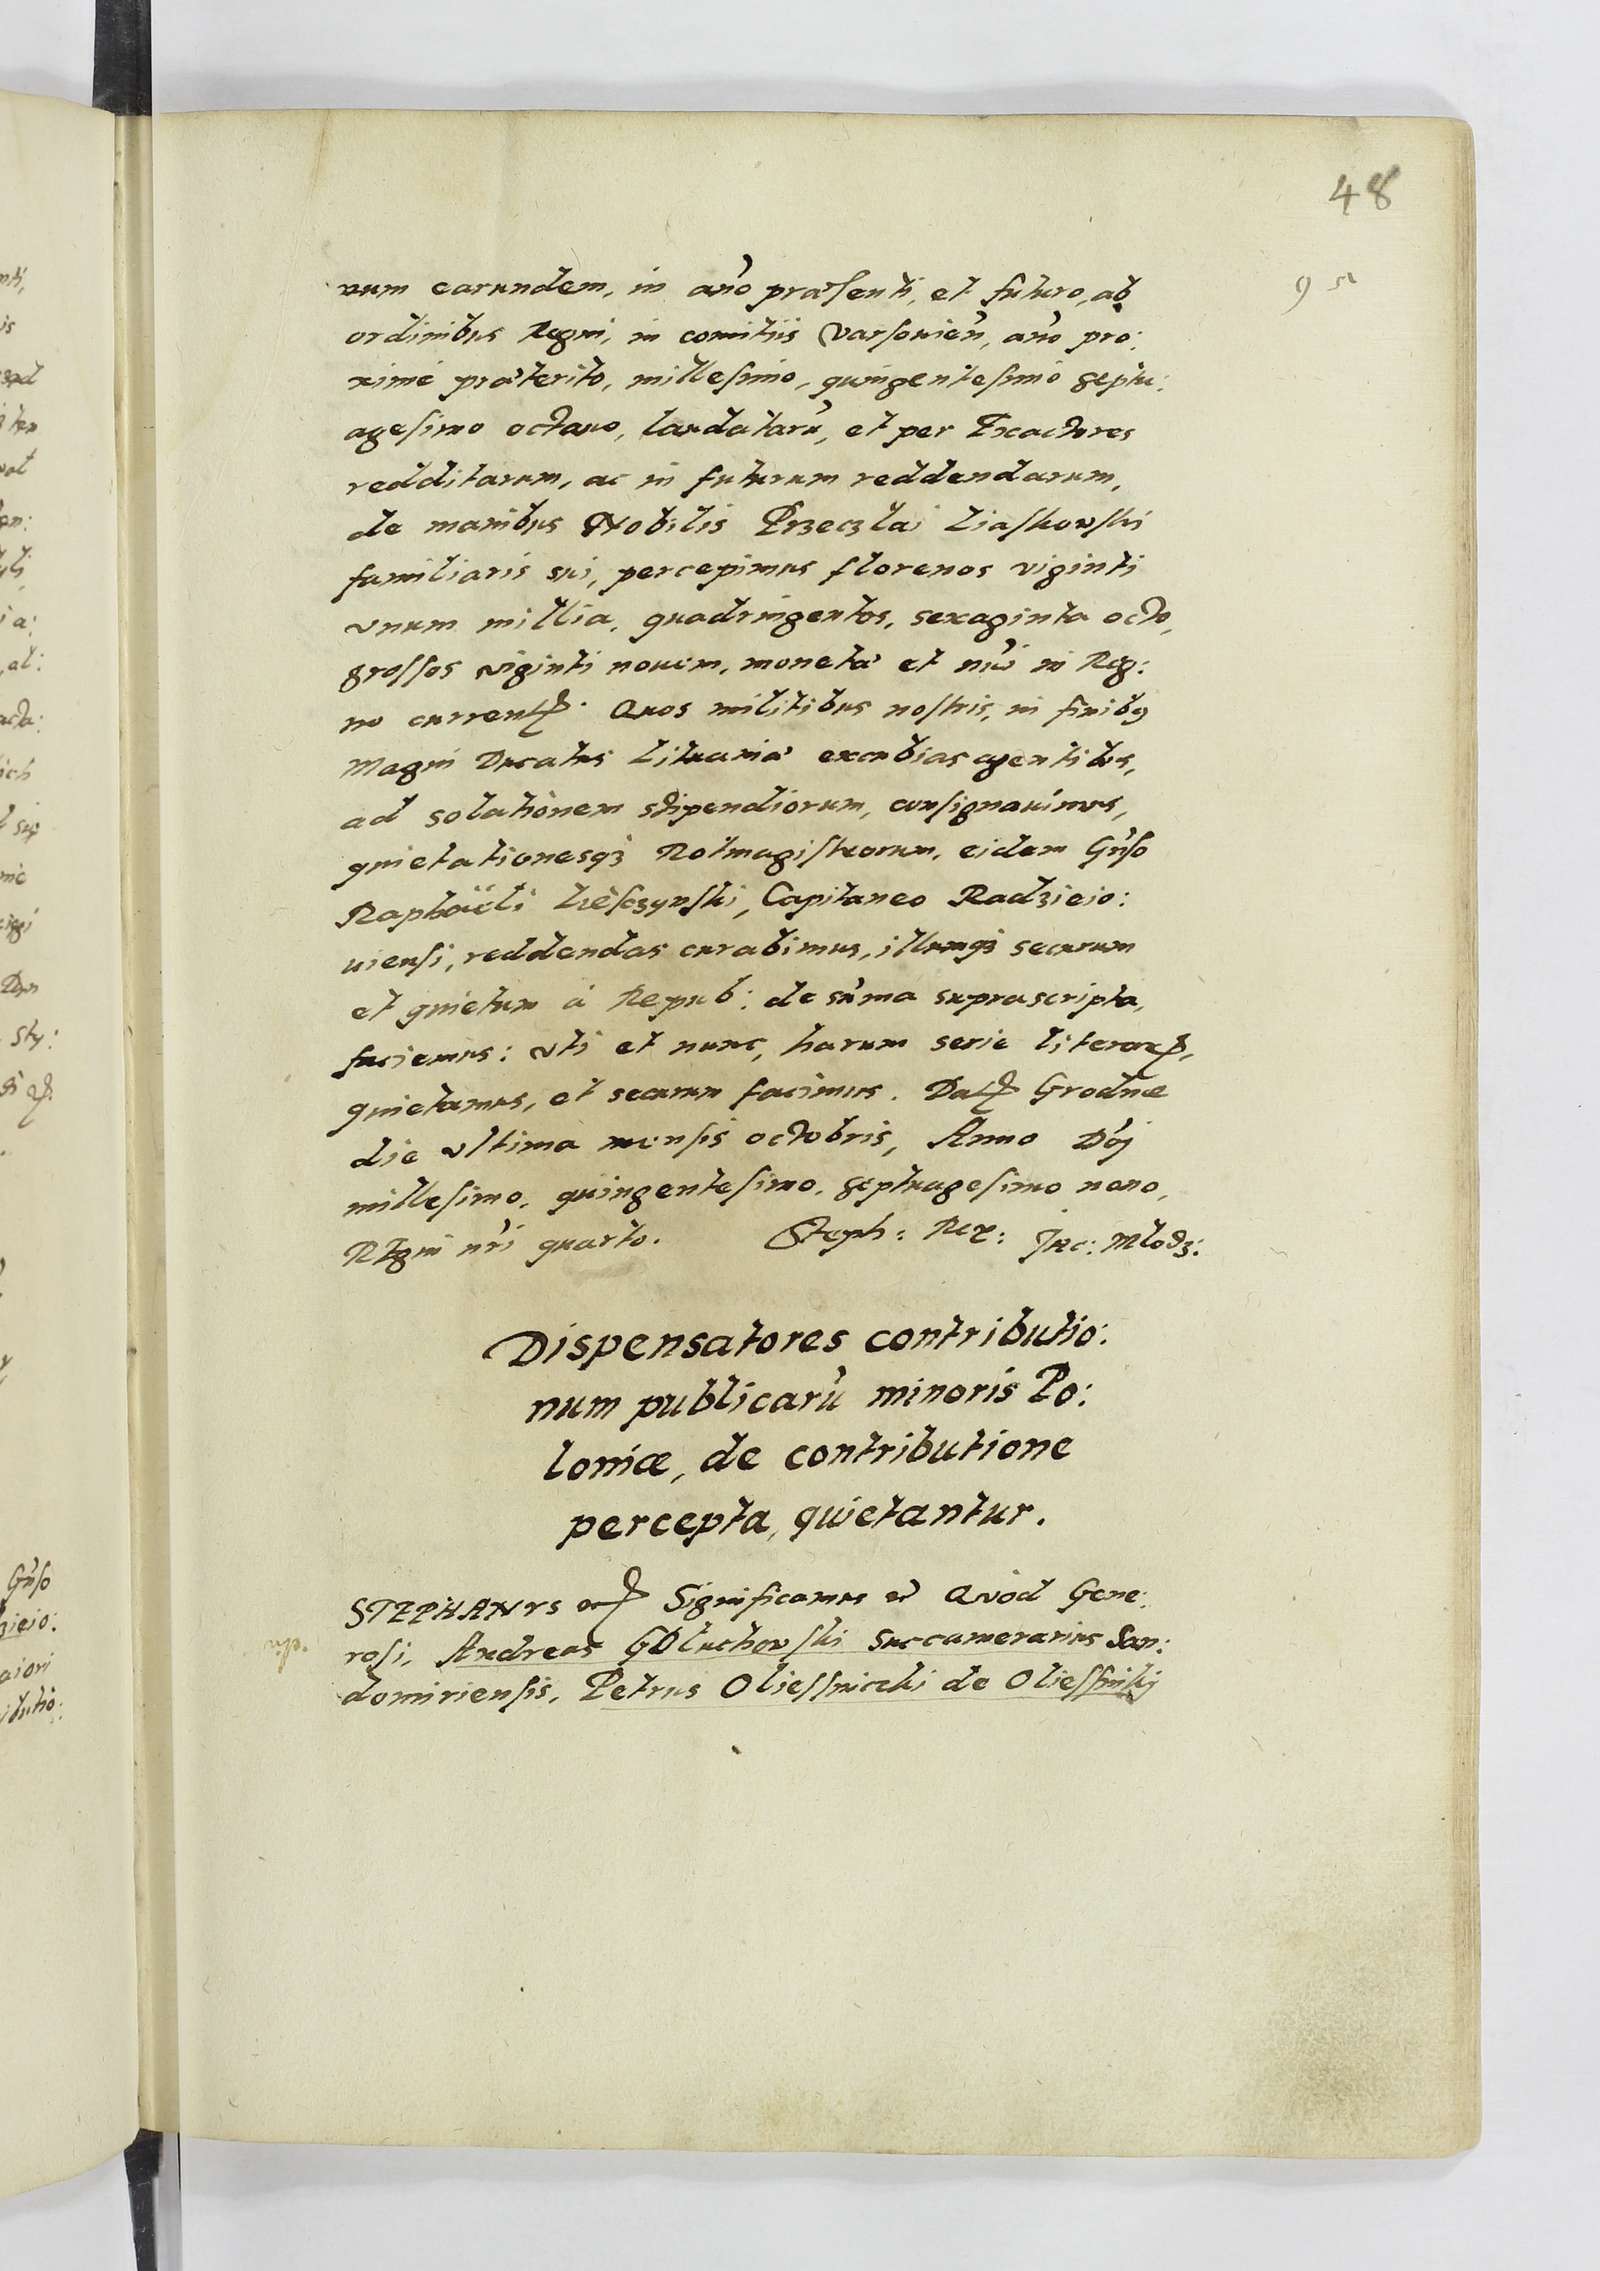 48
num earundem, in año præsenti, et futuro, ab
ordinibus Regni, in comitiis Varsouien̄, año pro:
ximè præterito, millesimo, quingentesimo septu:
agesimo octauo, laudatarū, et per Exactores
redditarum, ac in futurum reddendarum,
de manibus Nobilis Przeczlai Liaskowski
familiaris sui, percepimus florenos viginti
vnum millia, quadringentos, sexaginta octo,
grossos viginti nouem, monetæ et nūi in Reg:
no currentꝭ. Quos militibus nostris, in finibꝰ
Magni Ducatus Lituaniæ excubias agentibus,
ad solationem stipendiorum, consignauimus,
quietationesqꝫ Rotmagistrorum, eidem Gn̄so
Raphaëli Liesczynski, Capitaneo Radzieio:
uiensi, reddendas curabimus, illumqꝫ securum
et quietum à Repub: de sūma suprascripta,
faciemus: vti et nunc, harum serie literarꝝ,
quietamus, et securum facimus. Datꝭ Grodnæ
die vltima mensis octobris, Anno Dn̄j
millesimo, quingentesimo, septuagesimo nono,
Regni nr̄i quarto. Steph: Rex: Jac: Mlodz:
Dispensatores contributio:
num publicarū minoris Po:
loniæ, de contributione
percepta, quietantur.
STEPHANVS etcꝭ Significamus etc̄ Quòd Gene:
rosi, Andreas GOluchowski Succamerarius San:
domiriensis, Petrus Oliessnicki de Oliessnikj